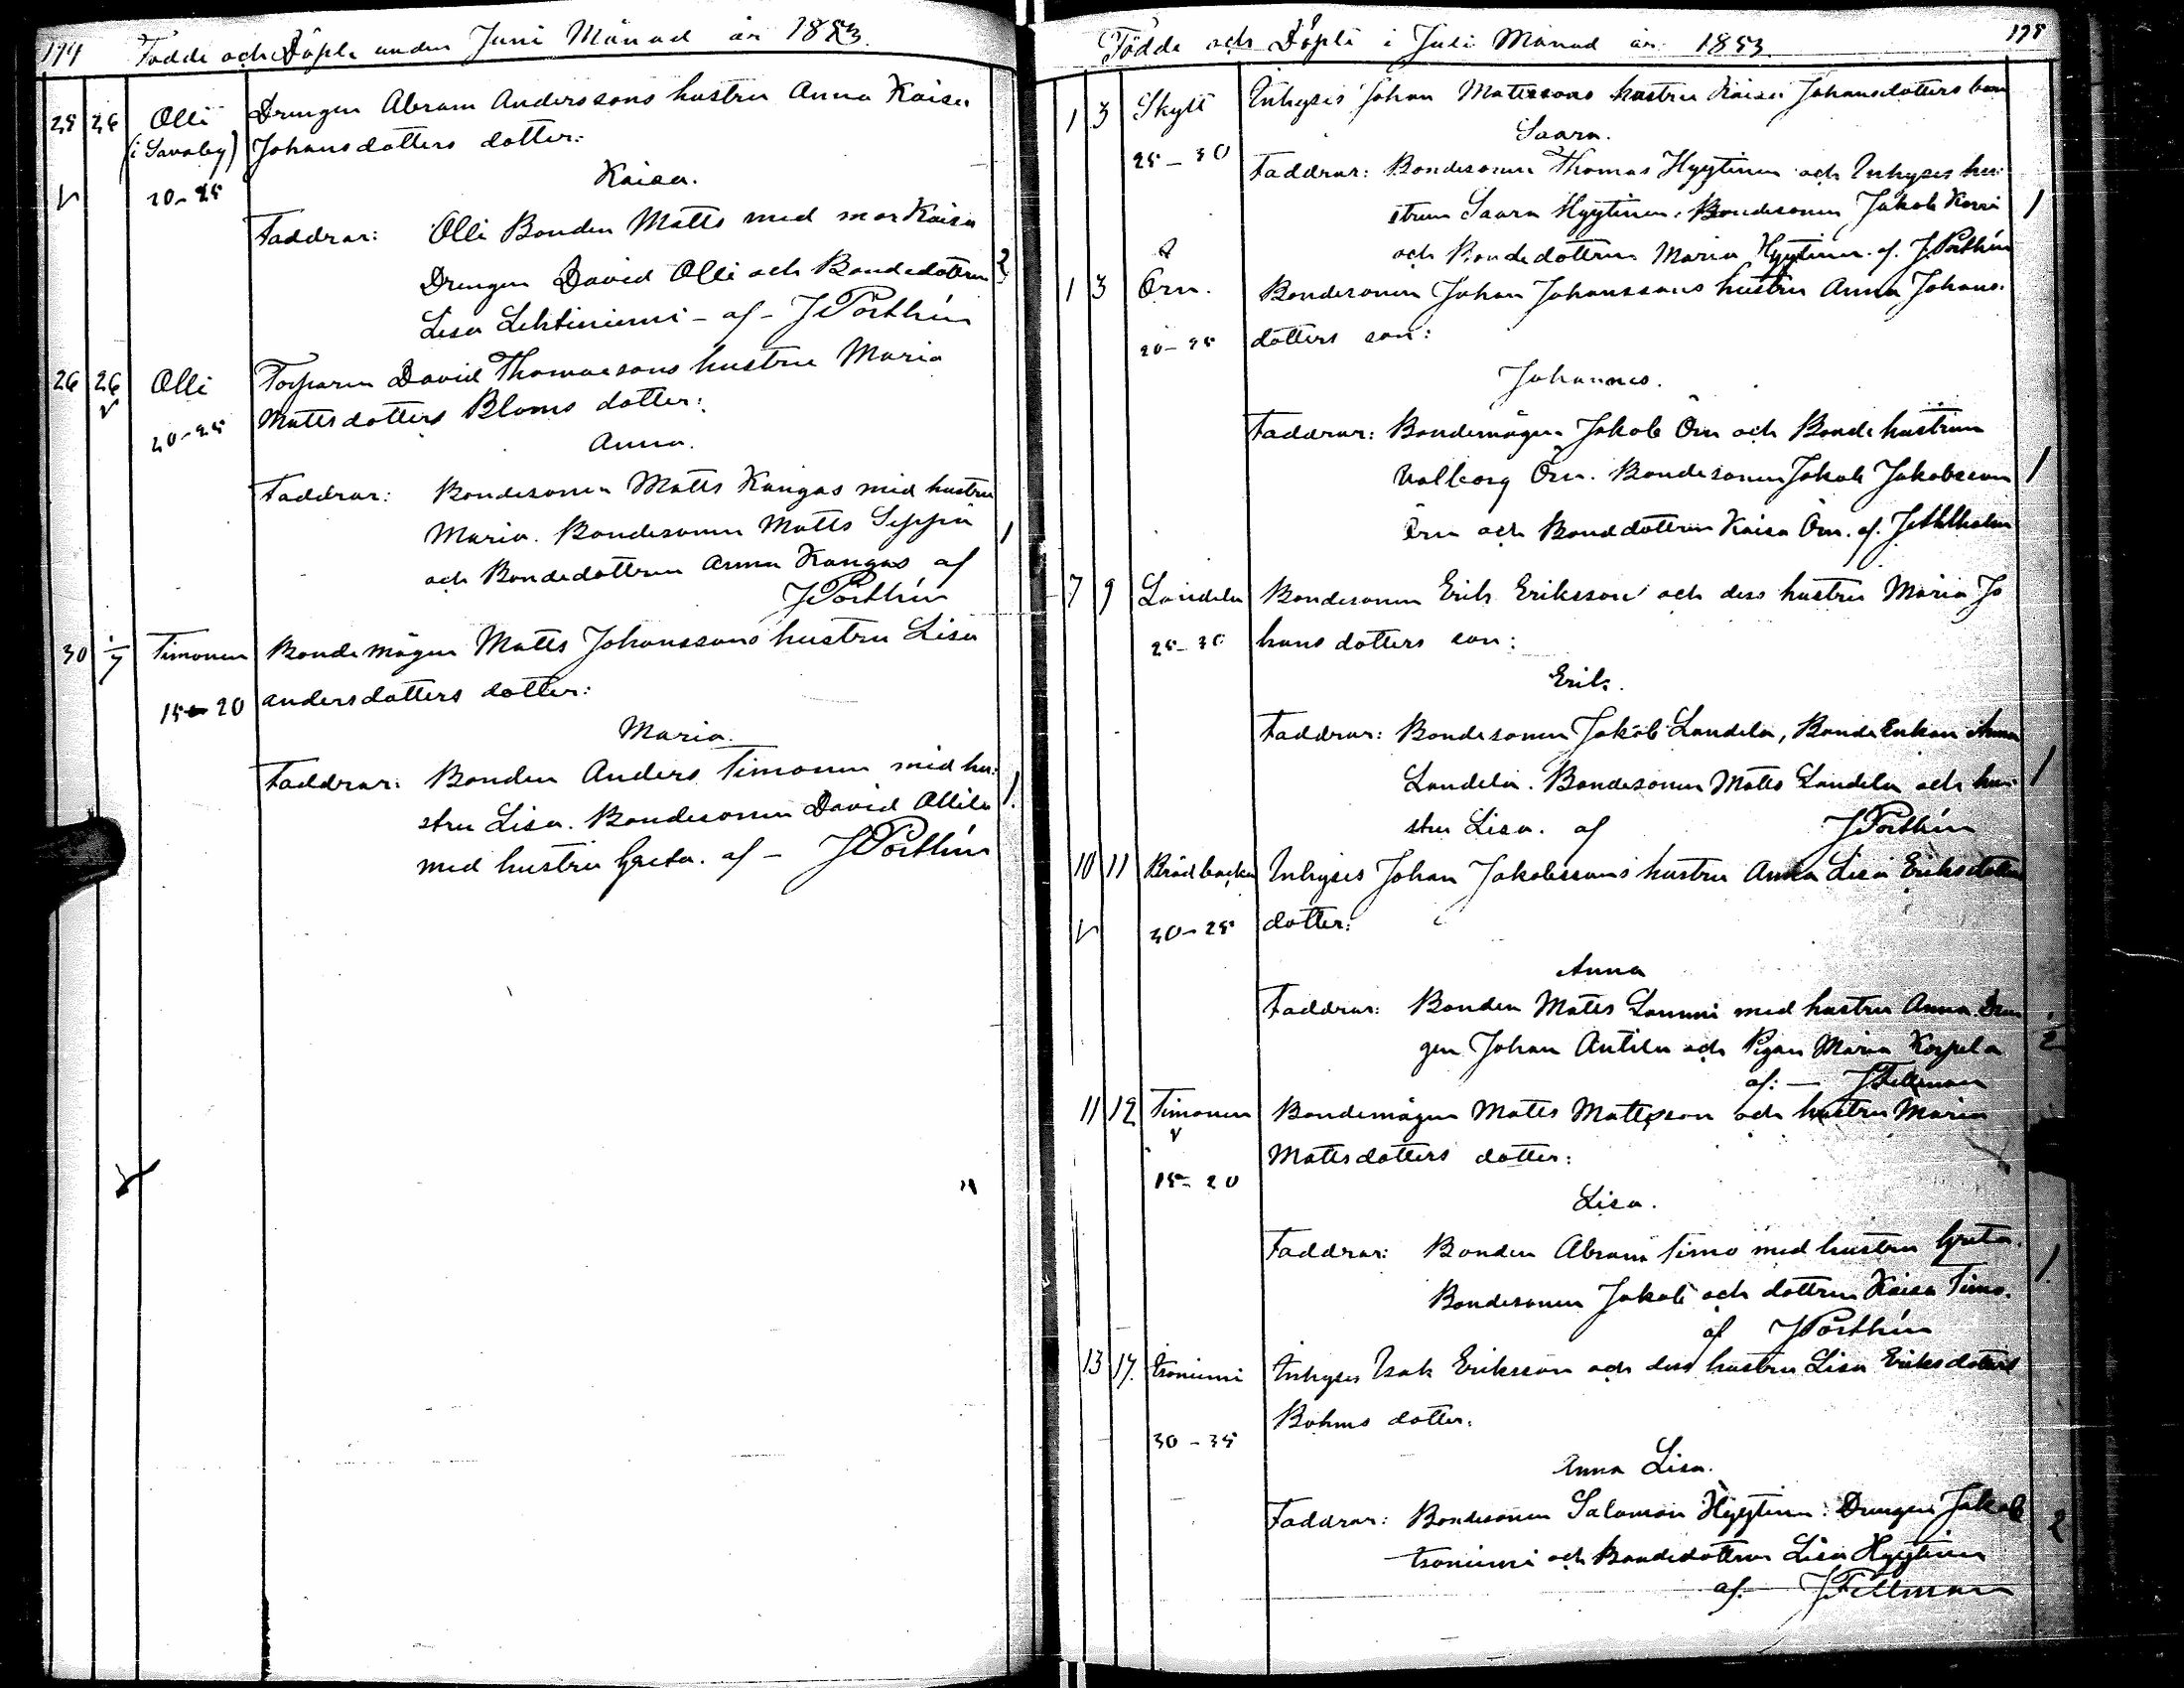 174 Födde och Döpte under Juni Månad år 1853.
25 26 Olli Drengen Abram Anderssons hustru Anna Kaisa
(i Savaby) Johansdotters dotter:
Kaisa.
20-25
Faddrar: Olli Bonden Matts med mor Kaisa
Drengen David Olli och Bondedottren 2
Lisa Lehtiniemi - af - JPorthín
26 26 Olli Torparen David Thomassons hustru Maria
Mattsdotters Bloms dotter:
20-25
Anna.
Faddrar: Bondesonen Matts Kangas med hustru
Maria. Bondesonen Matts Seppä 1
och Bondedottren Anna Kangas af
JPorthín
30 1/7 Timonen Bondemågen Matts Johanssons hustru Lisa
15-20 Andersdotters dotter:
Maria.
Faddrar: Bonden Anders Timonen med hu-
stru Lisa. Bondesonen David Ollila 1.
med hustru Greta. af - JPorthín
Födde och Döpte i Juli Månad år 1853. 175
1 3 Skytt Inhyses Johan Matessons hustru Kaisa Johansdotters barn
Saara.
25-30 Faddrar: Bondesonen Thomas Hyytinen och Inhyses hu-
strun Saara Hyytinen. Bondesonen Jakob 1
och Bondedottren Maria Hyytinen. af. JPorthín
1 3 Örn. Bondesonen Johan Johanssons hustru Anna Johans-
20-25 dotters son:
Johannes.
Faddrar: Bondemågen Jakob Örn och Bondehustrun
Valborg Örn. Bondesonen Jakob Jakobsson 1
Örn och Bonddottren Kaisa Örn. af.
7 9 Landela Bondesonen Erik Eriksson och dess hustru Maria Jo
25-30 hansdotters son:
Erik.
Faddrar: Bondesonen Jakob Landela, BondeEnkan Anna
Landela. Bondesonen Matts Landela och hu- 1
stru Lisa. af JPorthín
10 11 Brädbacka Inhyses Johan Jakobssons hustru Anna Lisa Eriksdotters
30-25 dotter:
Anna
Faddrar: Bonden Matts Lammi med hustru Anna. Dren
gen Johan Antila och Pigan Maria Korpela 2
af: — JFellman
11 12 Timonen Bondemågen Matts Mattsson och hustru Maria
Mattsdotters dotter:
15-20
Lisa.
Faddrar: Bonden Abram Timo med hustru Greta.
Bondesonen Jakob och dottren Kaisa Timo. 1.
af JPorthín
13 17. Isoniemi Inhyses Isak Eriksson och dess hustru Lisa Eriksdotters
Bohms dotter.
30-35
Anna Lisa.
Faddrar: Bondesonen Salomon Hyytinen. Drengen Jakob 2
Isoniemi och Bondedottren Lisa Hyytinen
af. JFellman